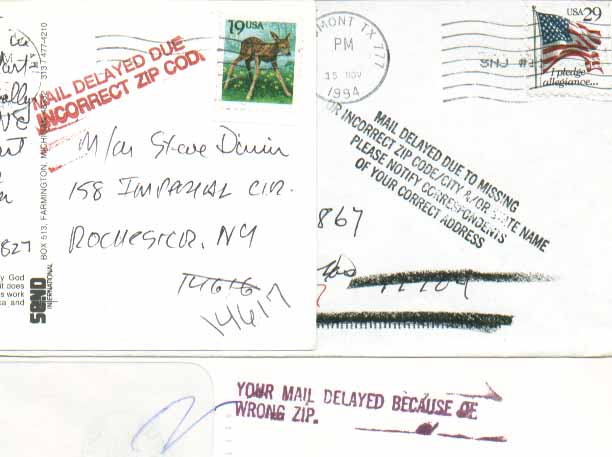 19USA
MAIL DELAYED DUE
INCORRECT ZIP CODE
M/M Steve
158 IMPERIAL CIR.
ROCHESTER, NY
14616
14617
827
313 / 477-4210
BOX 513, FARMINGTON, MICHIGAN
SAND
INTERNATIONAL
y God
it does
s work
ca and
MONT TX 777
PM
15 NOV
1994
USA 29
I pledge
allegiance...
MAIL DELAYED DUE TO MISSING
OR INCORRECT ZIP CODE/CITY &/OR STATE NAME
PLEASE NOTIFY CORRESPONDENTS
OF YOUR CORRECT ADDRESS
867
YOUR MAIL DELAYED BECAUSE OF
WRONG ZIP.